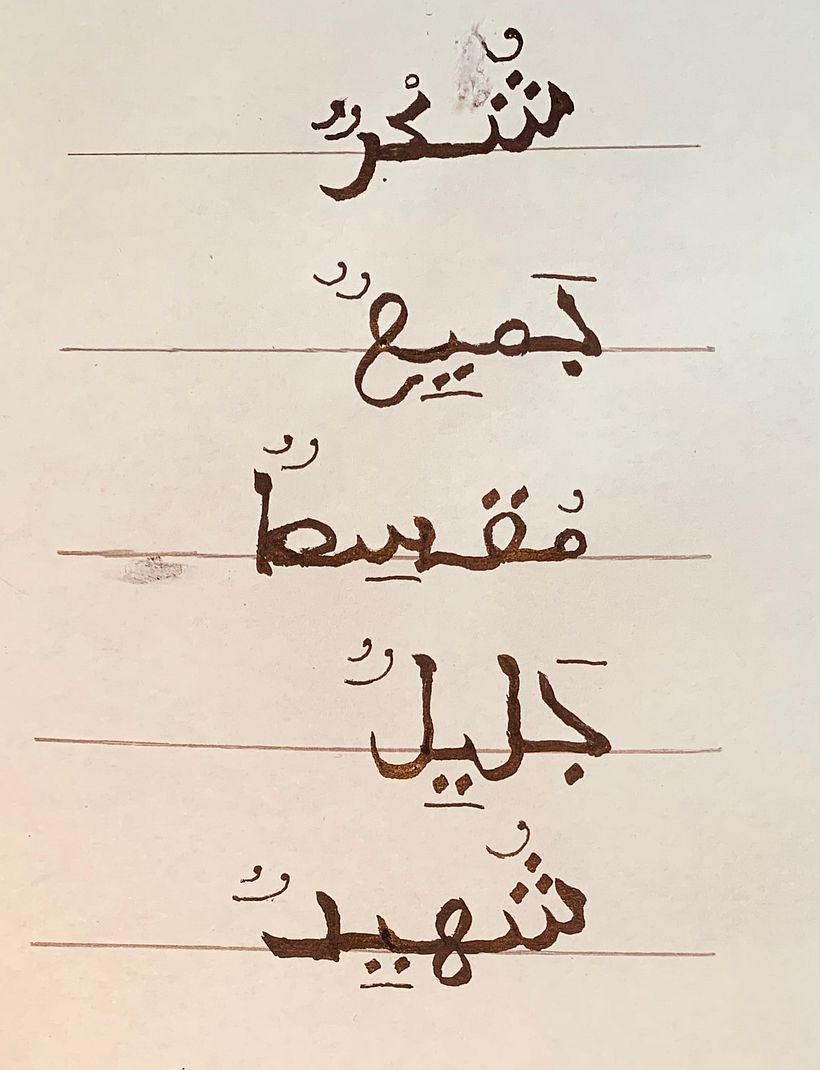 شُكْرٌ
جَمِيعٌ
مُقسِطٌ
جَلِيلٌ
شُهِيدٌ